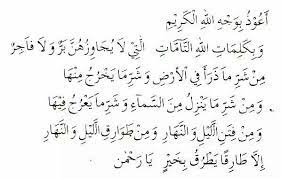 أَعُوْذُ بِوَجْهِ اللهِ الْكَرِيْمِ
وَبِكَلِمَاتِ اللهِ التَّامَّاتِ الَّتِيْ لَا يُجَاوِزُهُنَّ بَرٌّ وَلَا فَاجِرٌ
مِنْ شَرِّ مَا ذَرَأَ فِي الْأَرْضِ وَشَرِّ مَا يَخْرُجُ مِنْهَا
وَمِنْ شَرِّ مَا يَنْزِلُ مِنَ السَّمَاءِ وَشَرِّ مَا يَعْرُجُ فِيْهَا
وَمِنْ فِتَنِ اللَّيْلِ وَالنَّهَارِ وَمِنْ طَوَارِقِ اللَّيْلِ وَالنَّهَارِ
إِلَّا طَارِقًا يَطْرُقُ بِخَيْرٍ يَا رَحْمٰنُ